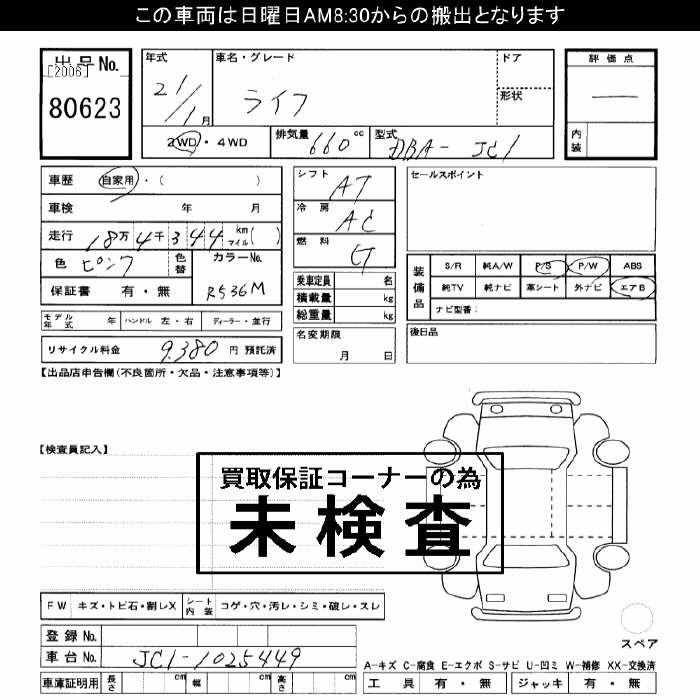 この車両は日曜日AM8:30からの搬出となります
出品No. 年式 車名・グレード ドア 評価点
[2006]
80623 21/1月 ライフ 形状 ―
2WD・4WD 排気量 660cc 型式 DBA-JC1 内装
車歴 自家用・( ) シフト AT セールスポイント
車検 年 月 冷房 AC
走行 18万4千344 km マイル( ) 燃料
色 ピンク 色替 カラーNo. 装備品 S/R 純A/W P/S P/W ABS
保証書 有・無 R536M 乗車定員 名 純TV 純ナビ 革シート 外ナビ エアB
積載量 kg ナビ型番:
総重量 kg
モデル年式 年 ハンドル 左・右 ディーラー・並行 名変期限 月 日 後日品
リサイクル料金 9,380 円 預託済
【出品店申告欄(不良箇所・欠品・注意事項等)】
【検査員記入】
買取保証コーナーの為
未検査
FW キズ・トビ石・割レX シート内装 コゲ・穴・汚レ・シミ・破レ・スレ
登録No.
スペア
車台No. JC1-1025449
A-キズ C-腐食 E-エクボ S-サビ U-凹ミ W-補修 XX-交換済
車庫証明用 長さ cm 幅 cm 高さ cm 工具 有・無 ジャッキ 有・無